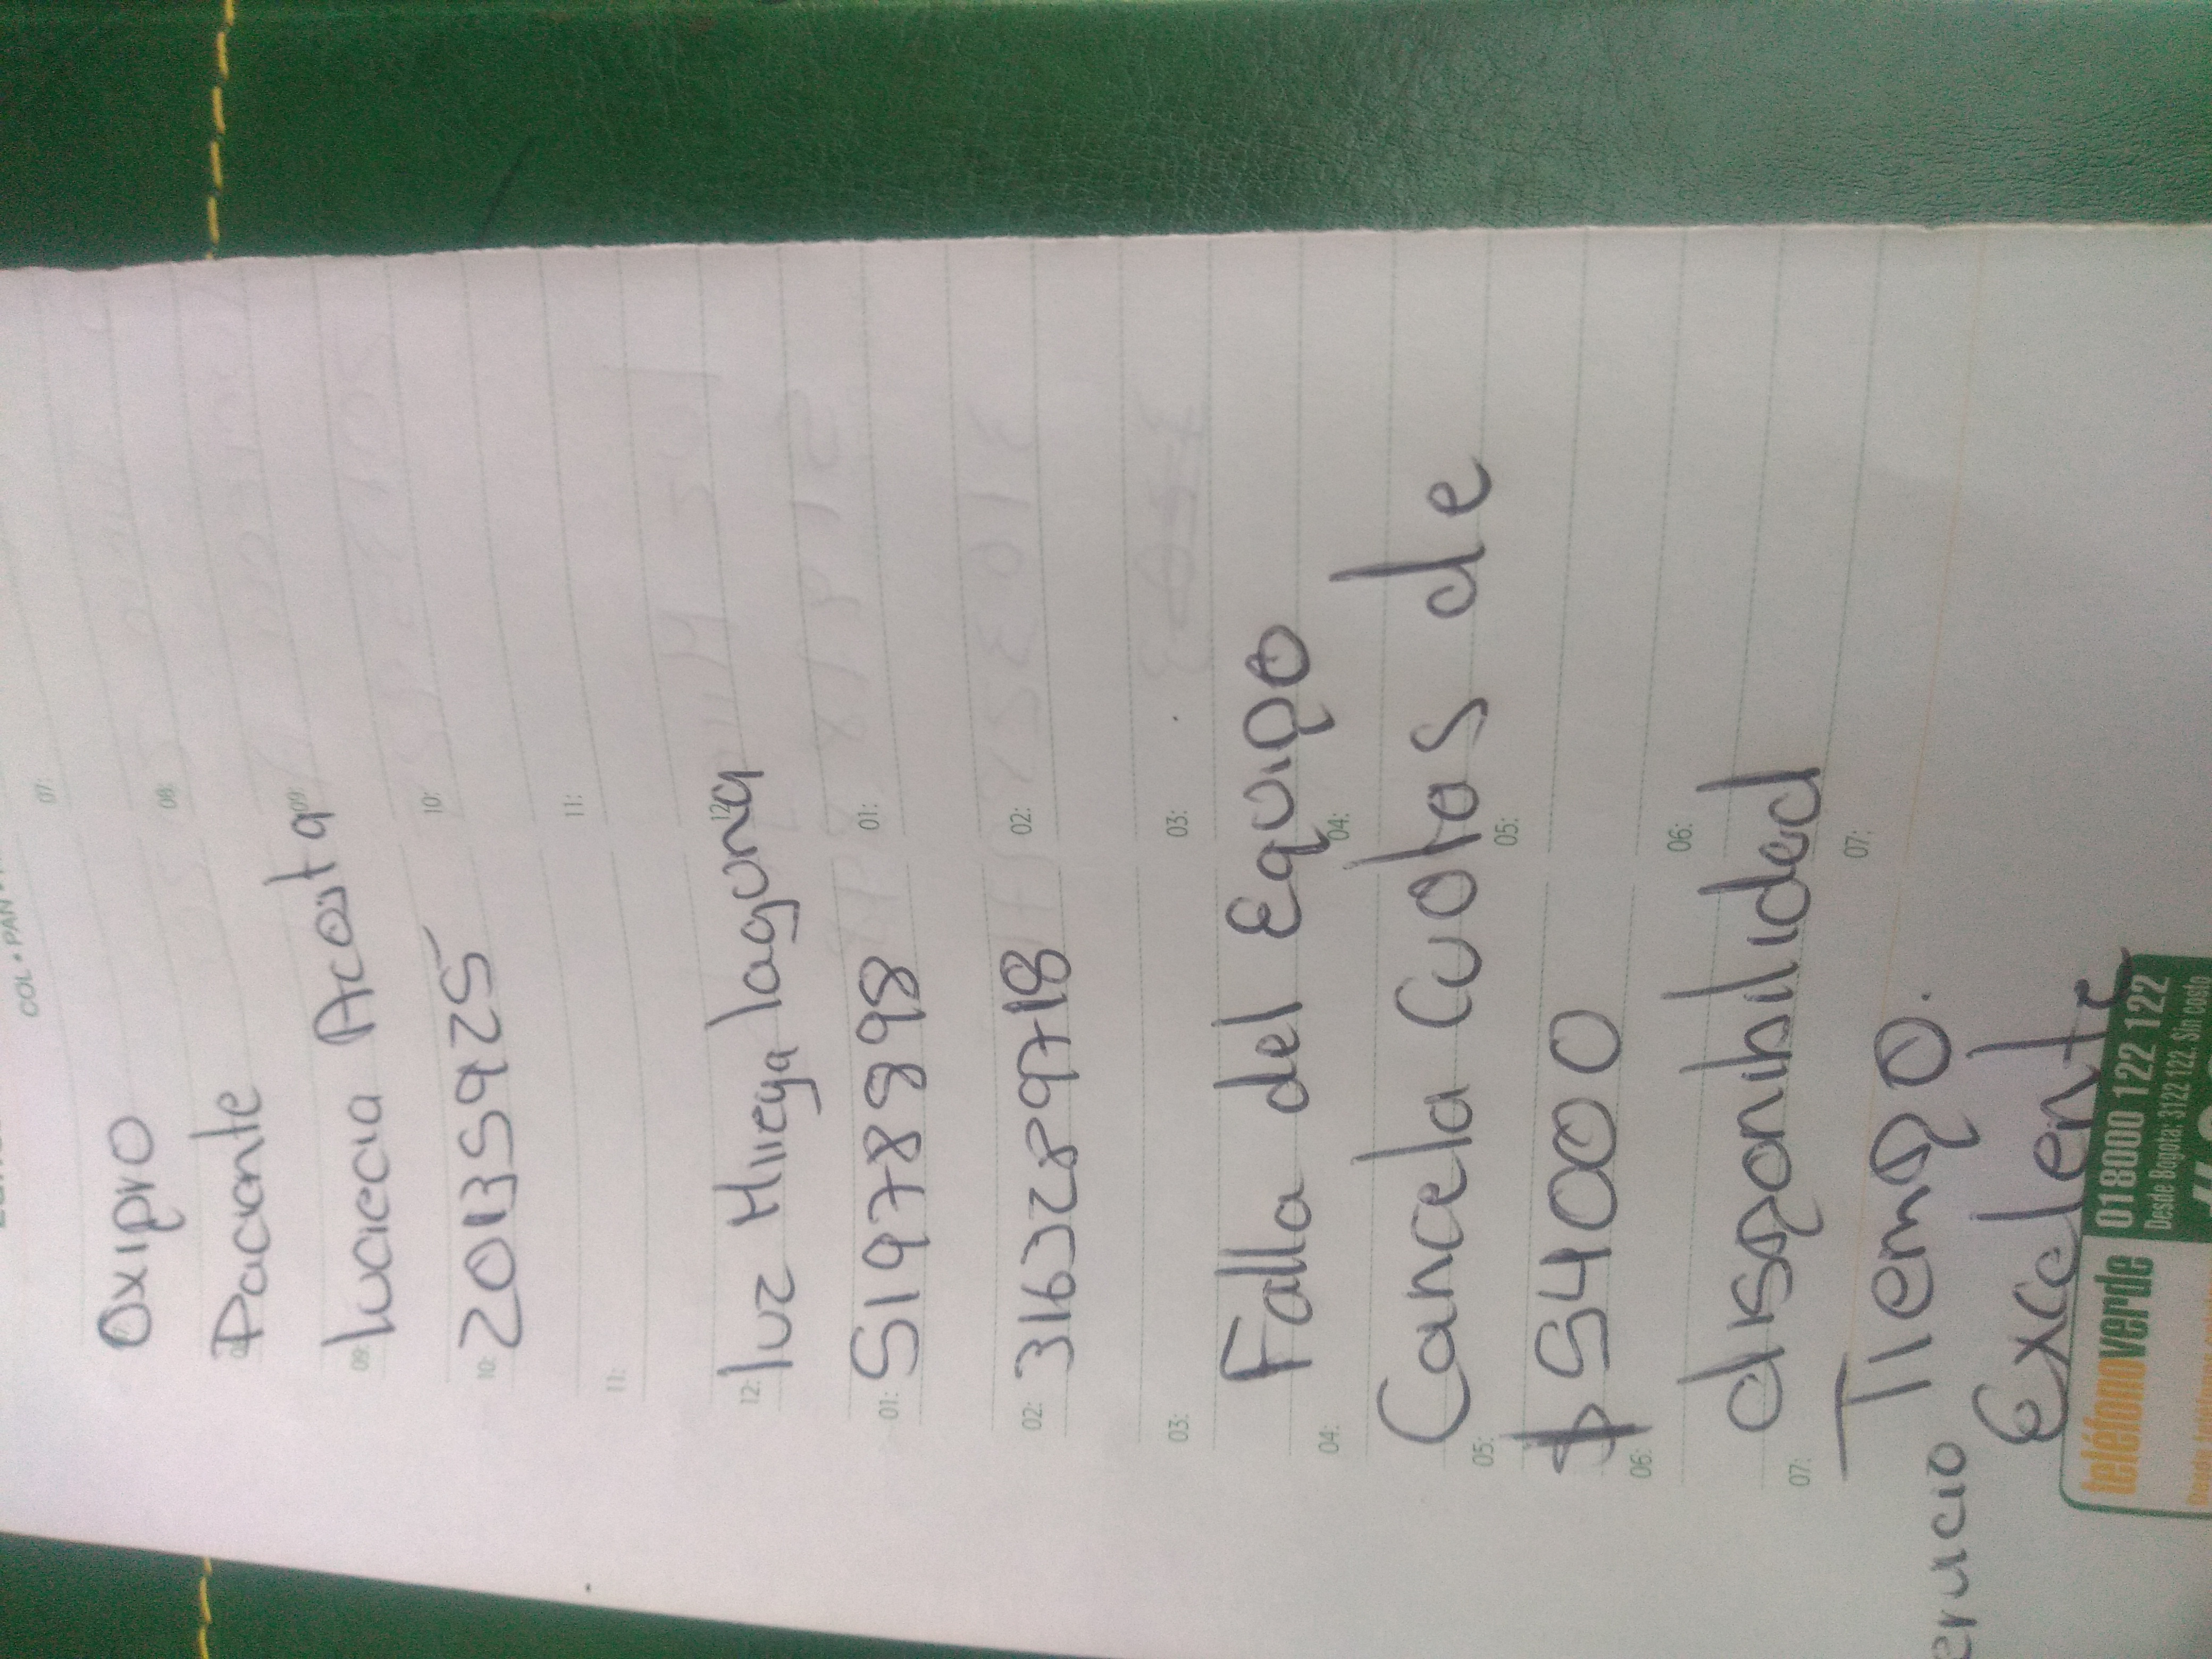 Oxipro
Paciente
lucrecia Acosta
20135925
luz Mireya laguna
51978898
3163289718
Falla del Equipo
Cancela Cuotas de
$54000
disponibilidad
Tiempo.
Excelente
COL • PAN
07:
08:
09:
10:
11:
12:
01:
02:
03:
04:
05:
06:
07:
09:
10:
11:
12:
01:
02:
03:
04:
05:
06:
07:
teléfonoverde 018000 122 122
Desde Bogota: 3122 122. Sin costo